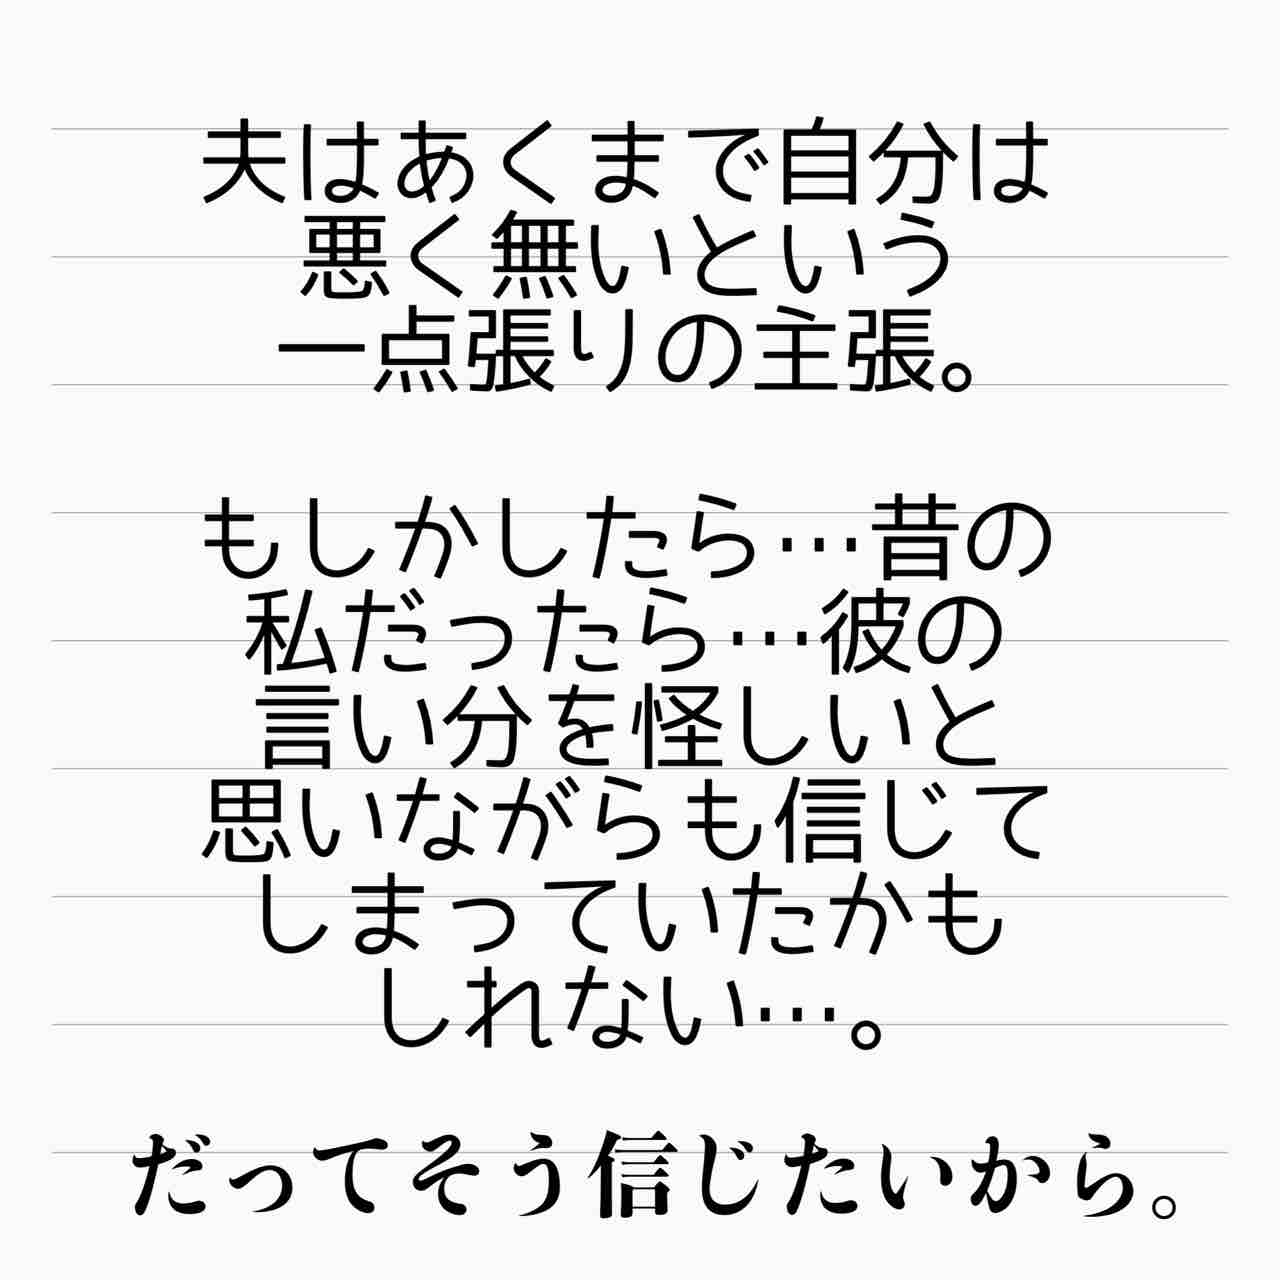 夫はあくまで自分は
悪く無いという
一点張りの主張。
もしかしたら…昔の
私だったら…彼の
言い分を怪しいと
思いながらも信じて
しまっていたかも
しれない…。
だってそう信じたいから。